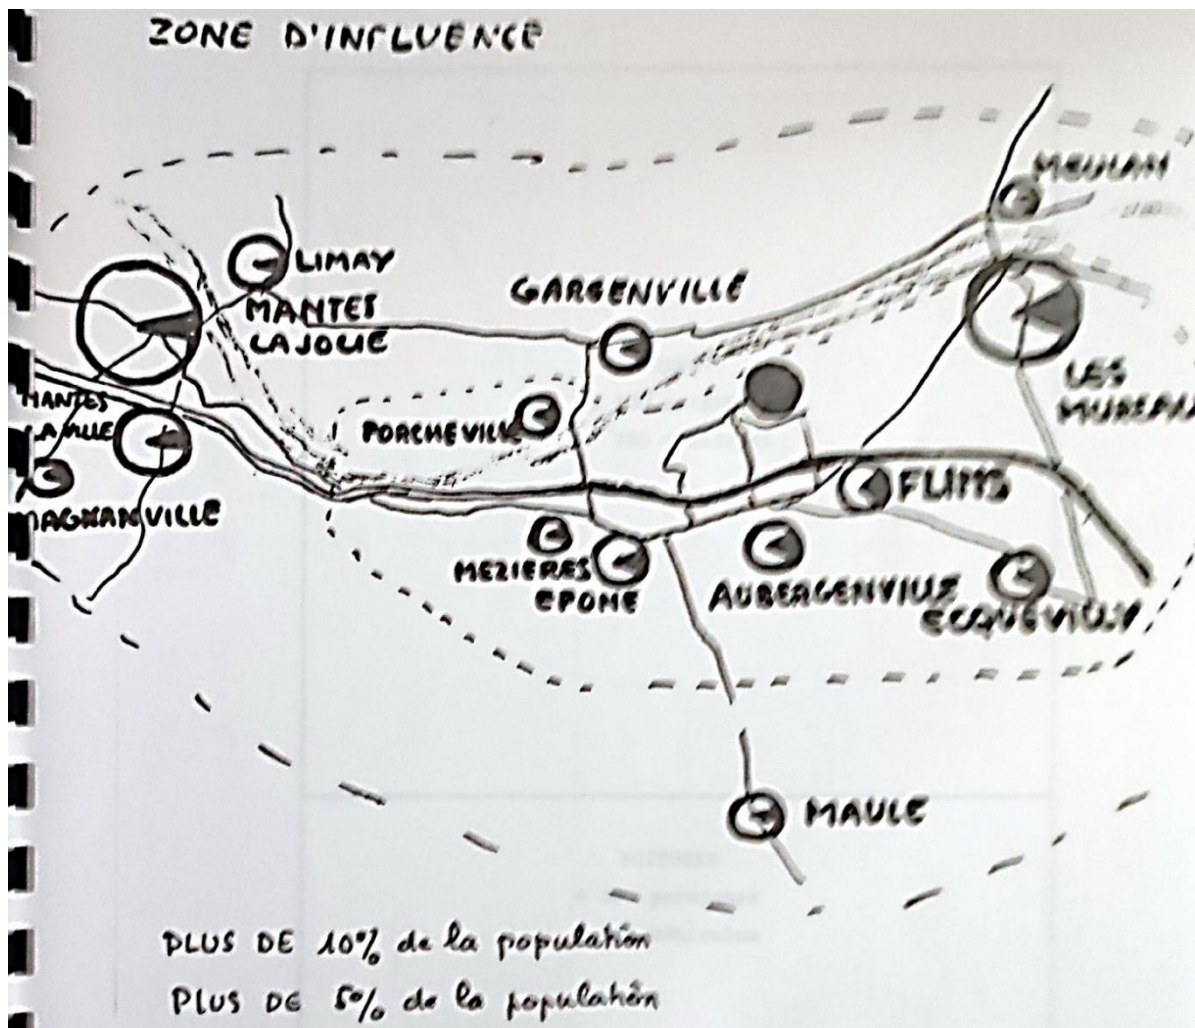 ZONE D'INFLUENCE
MEULAN
LIMAY
GARGENVILLE
MANTES
LA JOLIE
LES
MUREAU
MANTES
LA VILLE
PORCHEVILLE
FLINS
MAGNANVILLE
MEZIERES
EPONE
AUBERGENVILLE
ECQUEVILLY
MAULE
PLUS DE 10% de la population
PLUS DE 5% de la population